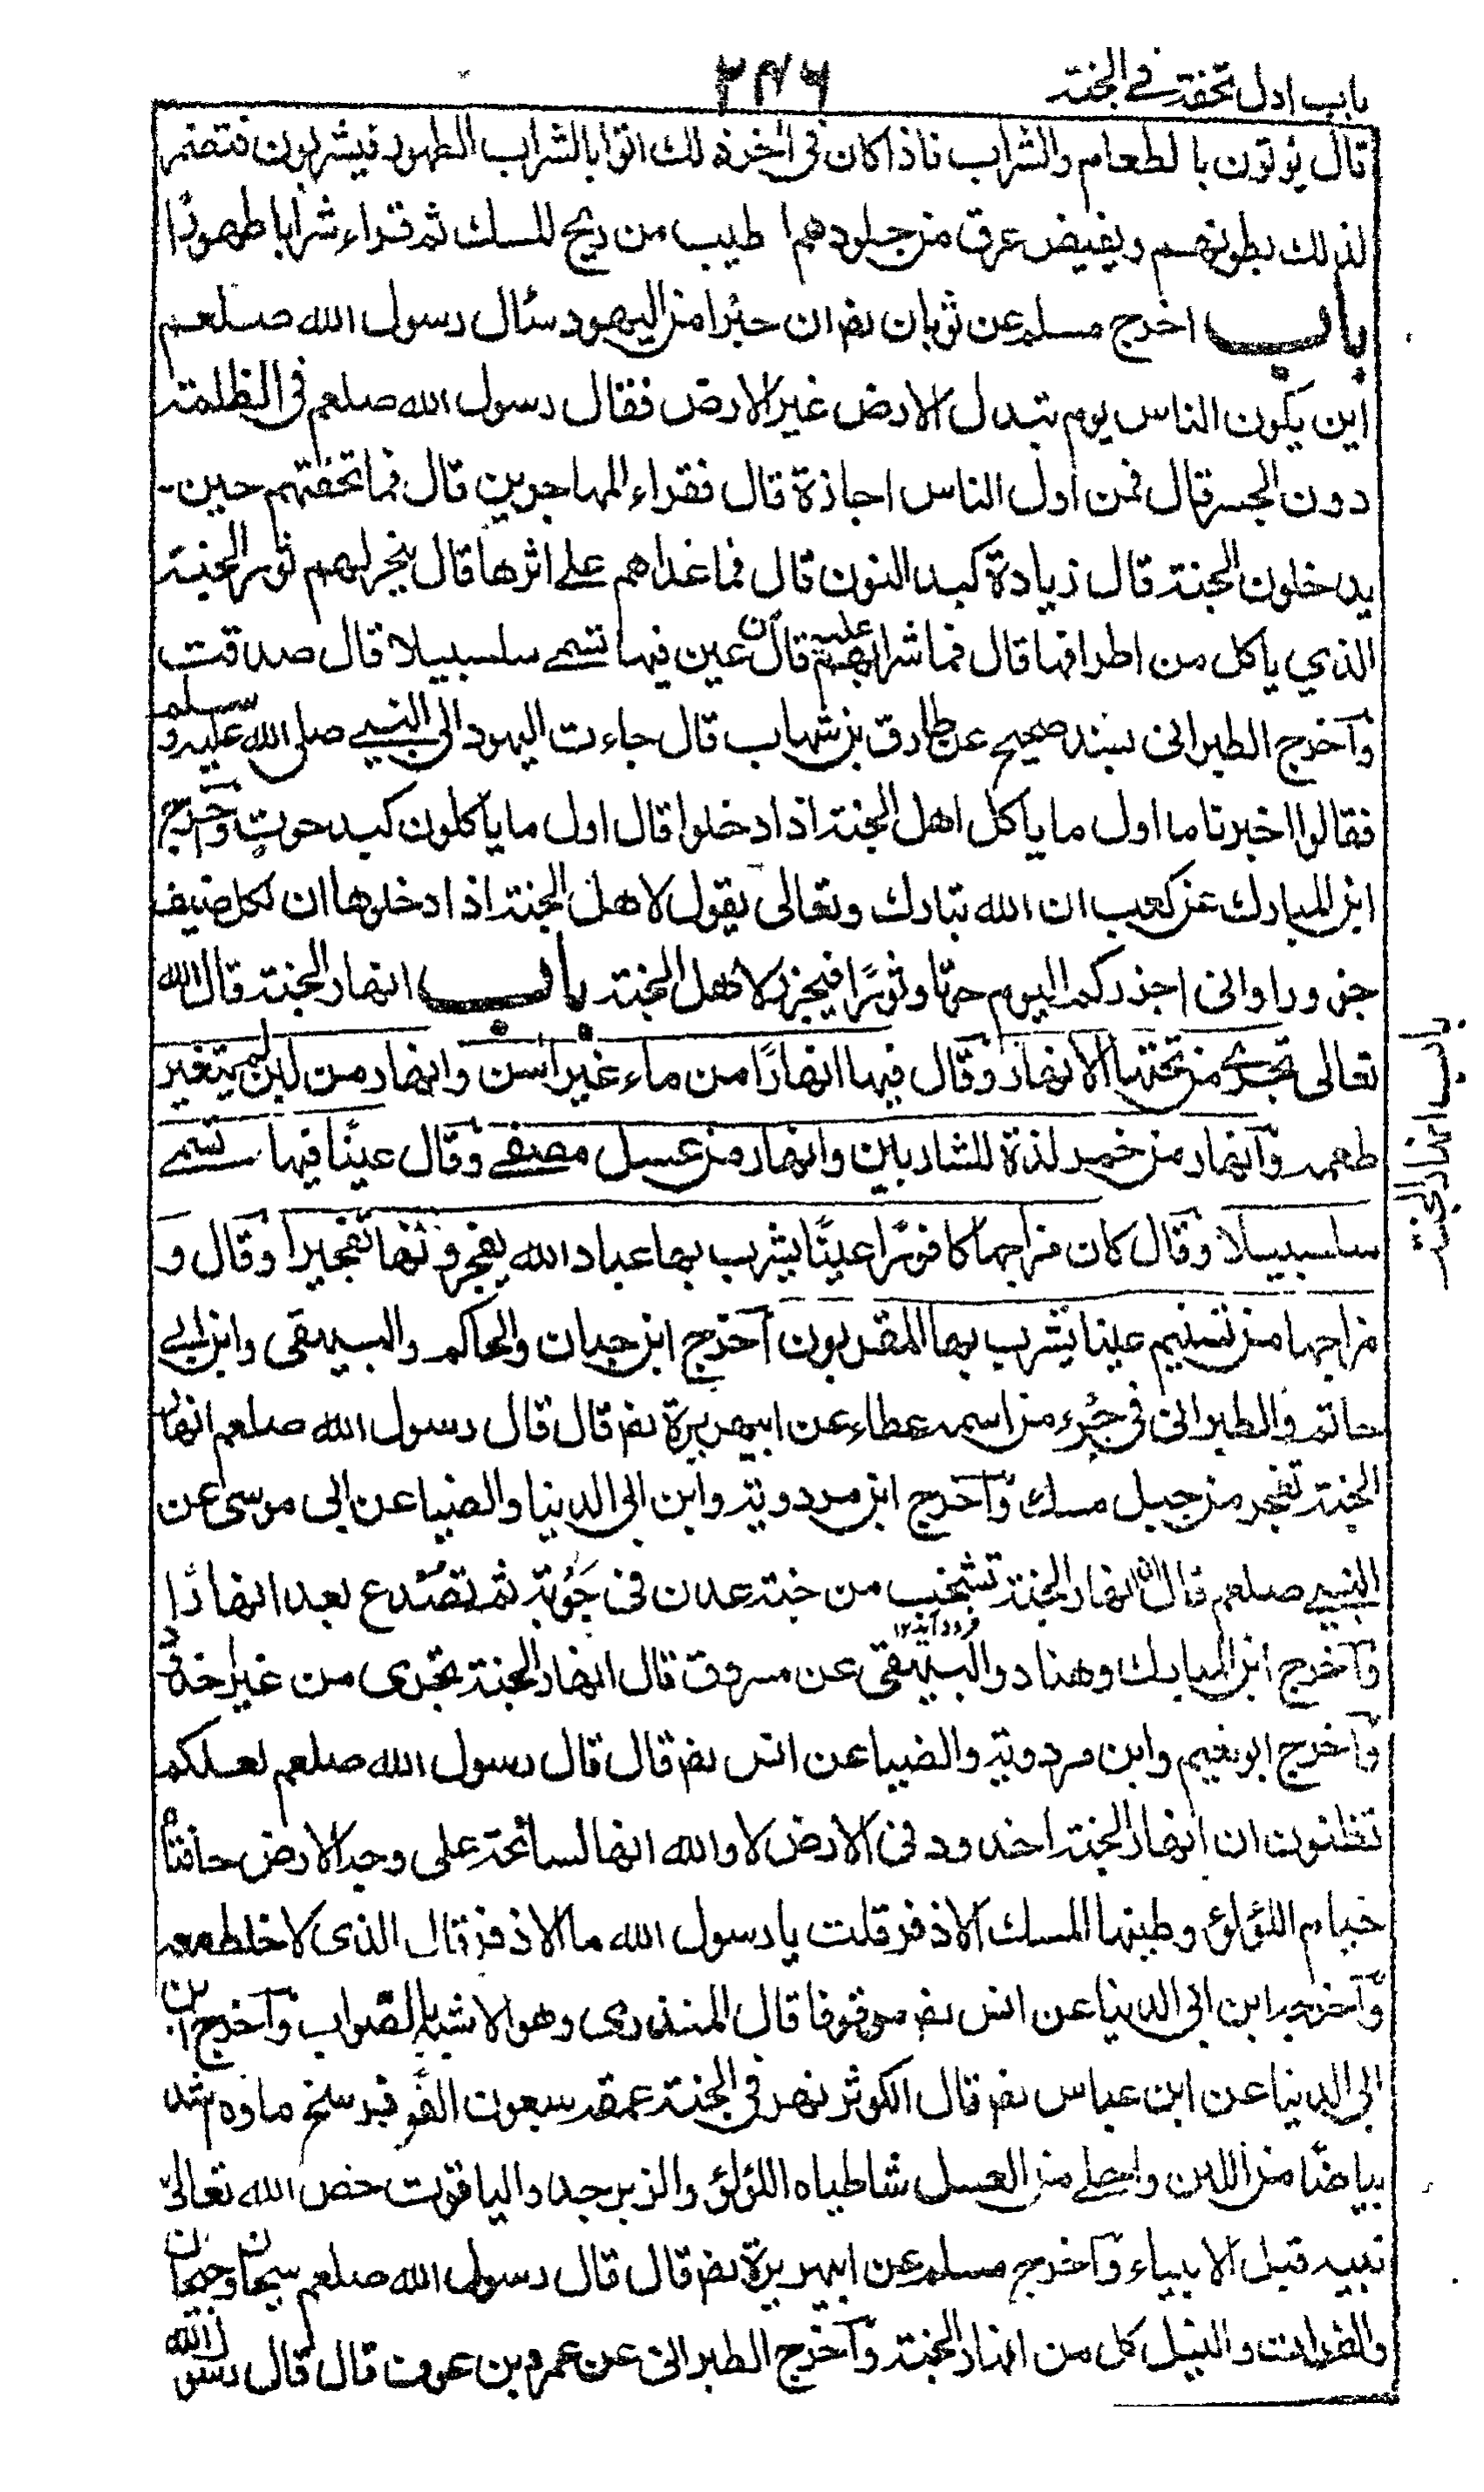 باب اول تحفة في الجنة
٢٤٦
قال يؤتون بالطعام والشراب فاذا كان فى اخر ذلك اتوا بالشراب الطهور فيشربون فتضمر
لذلك بطونهم ويفيض عرق من جلودهم اطيب من ريح المسك ثم قراء شرابا طهورًا
باب اخرج مسلم عن ثوبان رض ان حبرا من اليهود سئال رسول الله صلعم
اين يكون الناس يوم تبدل الارض غير الارض فقال رسول الله صلعم فى الظلمة
دون الجسر قال فمن اول الناس اجازة قال فقراء المهاجرين قال فما تحفتهم حين
يدخلون الجنة قال زيادة كبد النون قال فما غداهم على اثرها قال ينحر لهم ثور الجنة
الذي ياكل من اطرافها قال فما شرابهم عليه قال من عين فيها تسمى سلسبيلا قال صدقت
وآخرج الطبرانى بسند صحيح عن طارق بن شهاب قال جاءت اليهود الى النبي صلى الله عليه وسلم
فقالوا اخبرنا ما اول ما ياكل اهل الجنة اذا دخلوا قال اول ما ياكلون كبد حوت وآخرج
ابن المبارك عن كعب ان الله تبارك وتعالى يقول لاهل الجنة اذا دخلوها ان لكل ضيف
جزورا وانى اجزركم اليوم حوتا وثورًا فيجزر لاهل الجنة باب انهار الجنة قال الله
تعالى تجرى من تحتها الانهار وقال فيها انهارًا من ماء غير اسن وانهار من لبن لم يتغير
طعمه وآنهار من خمر لذة للشاربين وانهار من عسل مصفى وقال عينًا فيها تسمى
سلسبيلا وقال كان مزاجها كافورًا عينًا يشرب بها عباد الله يفجرونها تفجيرا وقال و
مزاجها من تسنيم عينا يشرب بها المقربون آخرج ابن حبان والحاكم والبيهقى وابن ابي
حاتم والطبرانى فى جزء من اسمه عطاء عن ابيهريرة رض قال قال رسول الله صلعم انهار
الجنة تفجر من جبل مسك وآخرج ابن مردوية وابن ابى الدنيا والضيا عن ابى موسى عن
النبي صلعم قال ان انهار الجنة تشخب من جنة عدن فى جَوْبة ثم تصدع بعد انهارًا
فرود آيد ١٢
وآخرج ابن المبارك وهناد والبيهقى عن مسروق قال انهار الجنة تجرى من غير اخدود
وآخرج ابو نعيم وابن مردوية والضيا عن انس رض قال قال رسول الله صلعم لعلكم
تظنون ان انهار الجنة اخدود فى الارض لا والله انها لسائحة على وجه الارض حافتاه
خيام اللؤلؤ وطينها المسك الاذفر قلت يا رسول الله ما الاذفر قال الذى لا خلط معه
وآخرجه ابن ابى الدنيا عن انس رض موقوفا قال المنذرى وهو الاشبه بالصواب وآخرج ابن
ابى الدنيا عن ابن عباس رض قال الكوثر نهر فى الجنة عمقه سبعون الف فرسخ ماوه اشد
بياضًا من اللبن واحلى من العسل شاطياه اللؤلؤ والزبرجد والياقوت خص الله تعالى
نبيه قبل الانبياء وآخرج مسلم عن ابيهريرة رض قال قال رسول الله صلعم سيحان وجيحان
والفرات والنيل كل من انهار الجنة وآخرج الطبرانى عن عمرو بن عوف قال قال رسول الله
باب انهار الجنة